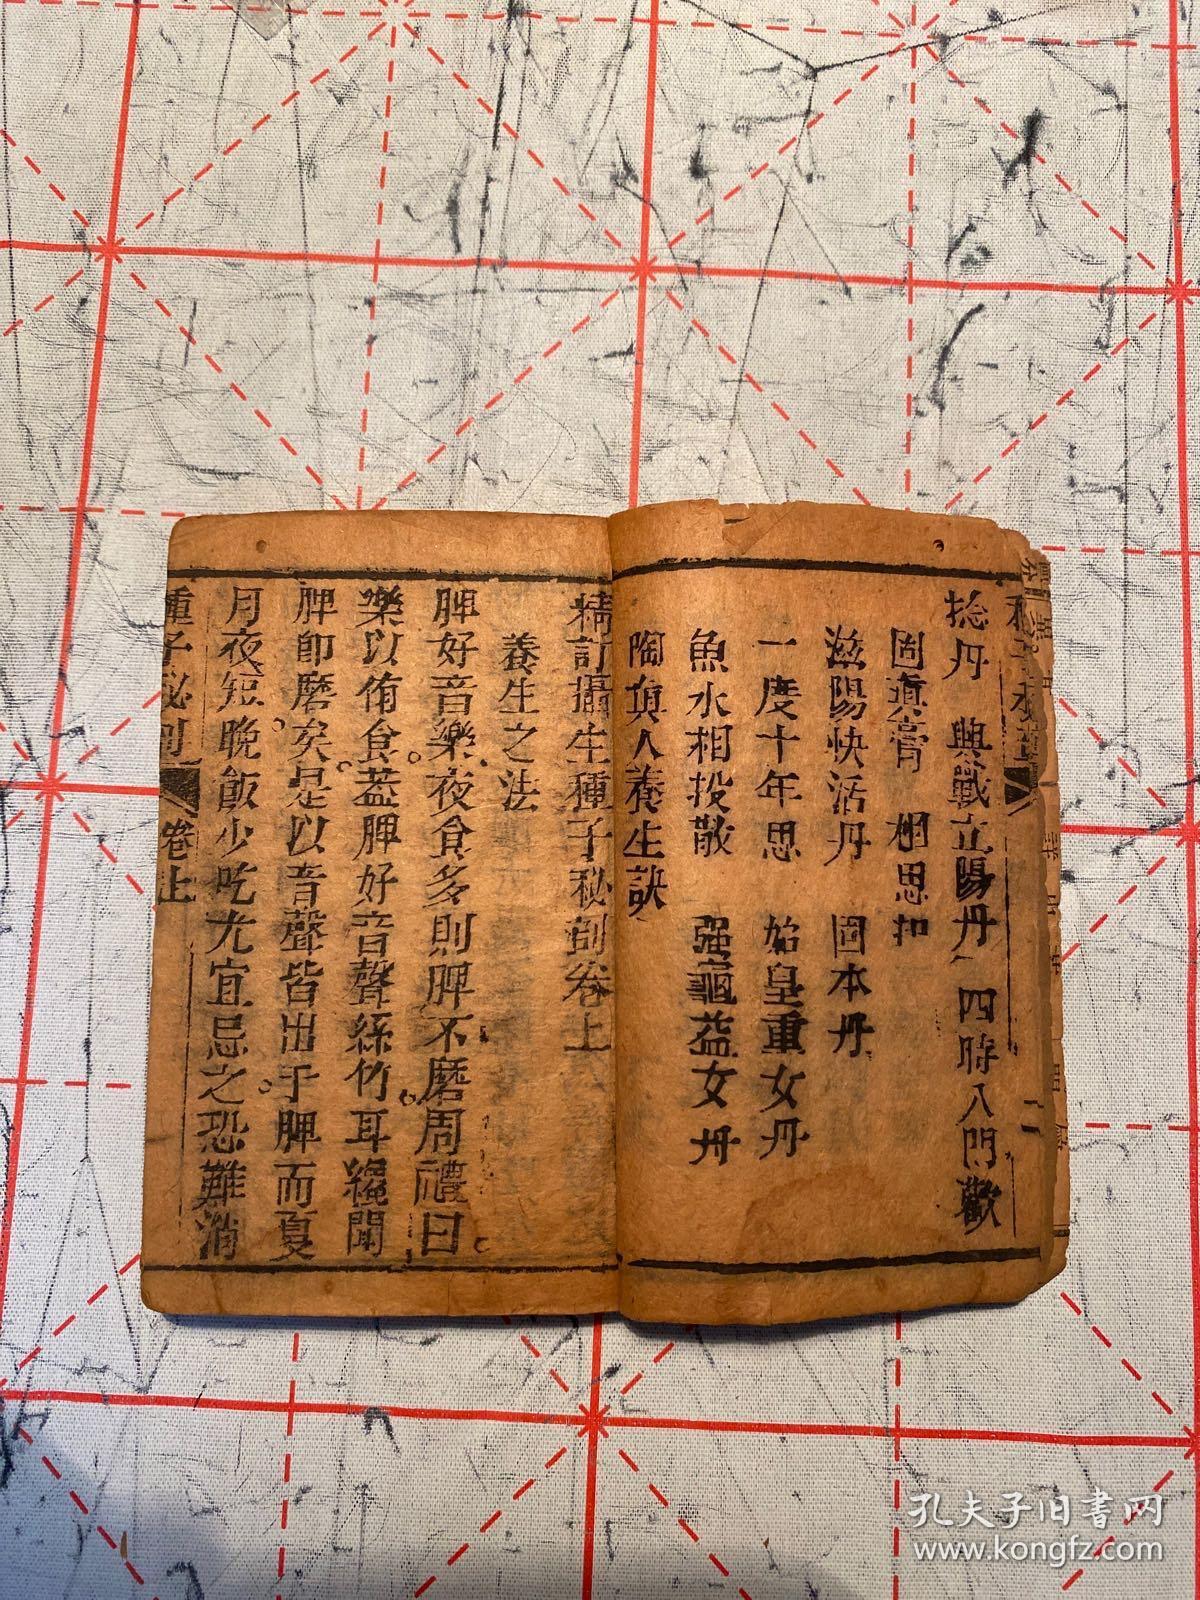 捻丹　與戰立陽丹　四時八門歡
固真膏　相思扣
滋陽快活丹　固本丹
一度十年思　始皇重女丹
魚水相投散　强龜益女丹
陶真人養生訣
二
精訂攝生種子秘剖卷上
養生之法
脾好音樂夜食多則脾不磨周禮曰
樂以侑食葢脾好音聲絲竹耳纔聞
脾即磨矣是以音聲皆出于脾而夏
月夜短晚飯少吃尤宜忌之恐難消
種子秘剖　卷上
孔夫子旧書网
www.kongfz.com